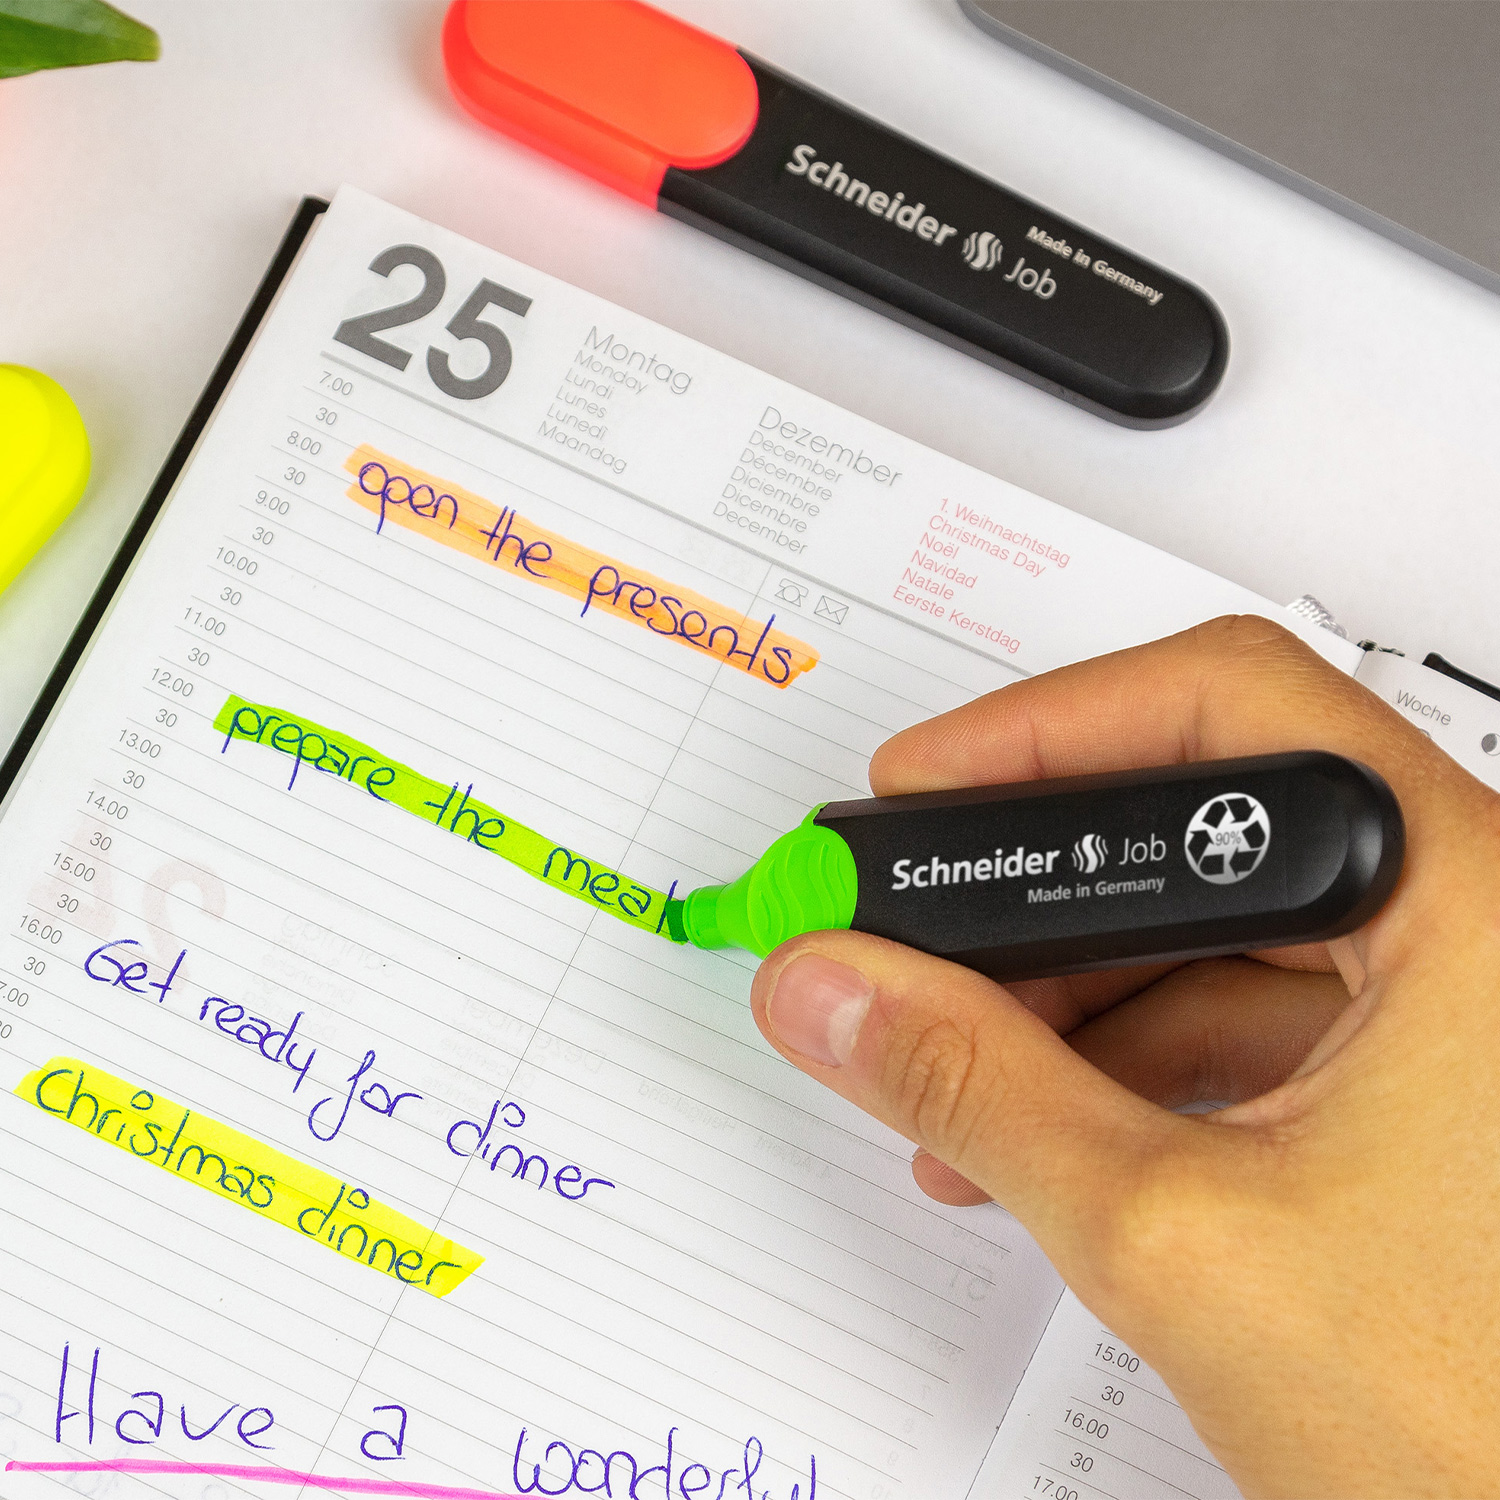 Schneider Job
Made in Germany
25
Montag
Monday
Lundi
Lunes
Lunedì
Maandag
Dezember
December
Décembre
Diciembre
Dicembre
December
1. Weihnachtstag
Christmas Day
Noël
Navidad
Natale
Eerste Kerstdag
Woche
7.00
30
8.00
open the presents
30
9.00
30
10.00
30
11.00
30
12.00
prepare the meal
30
13.00
30
14.00
30
15.00
30
16.00
Get ready for dinner
30
7.00
30
Christmas dinner
Have a wonderful
Schneider Job 90%
Made in Germany
15.00
30
16.00
30
17.00